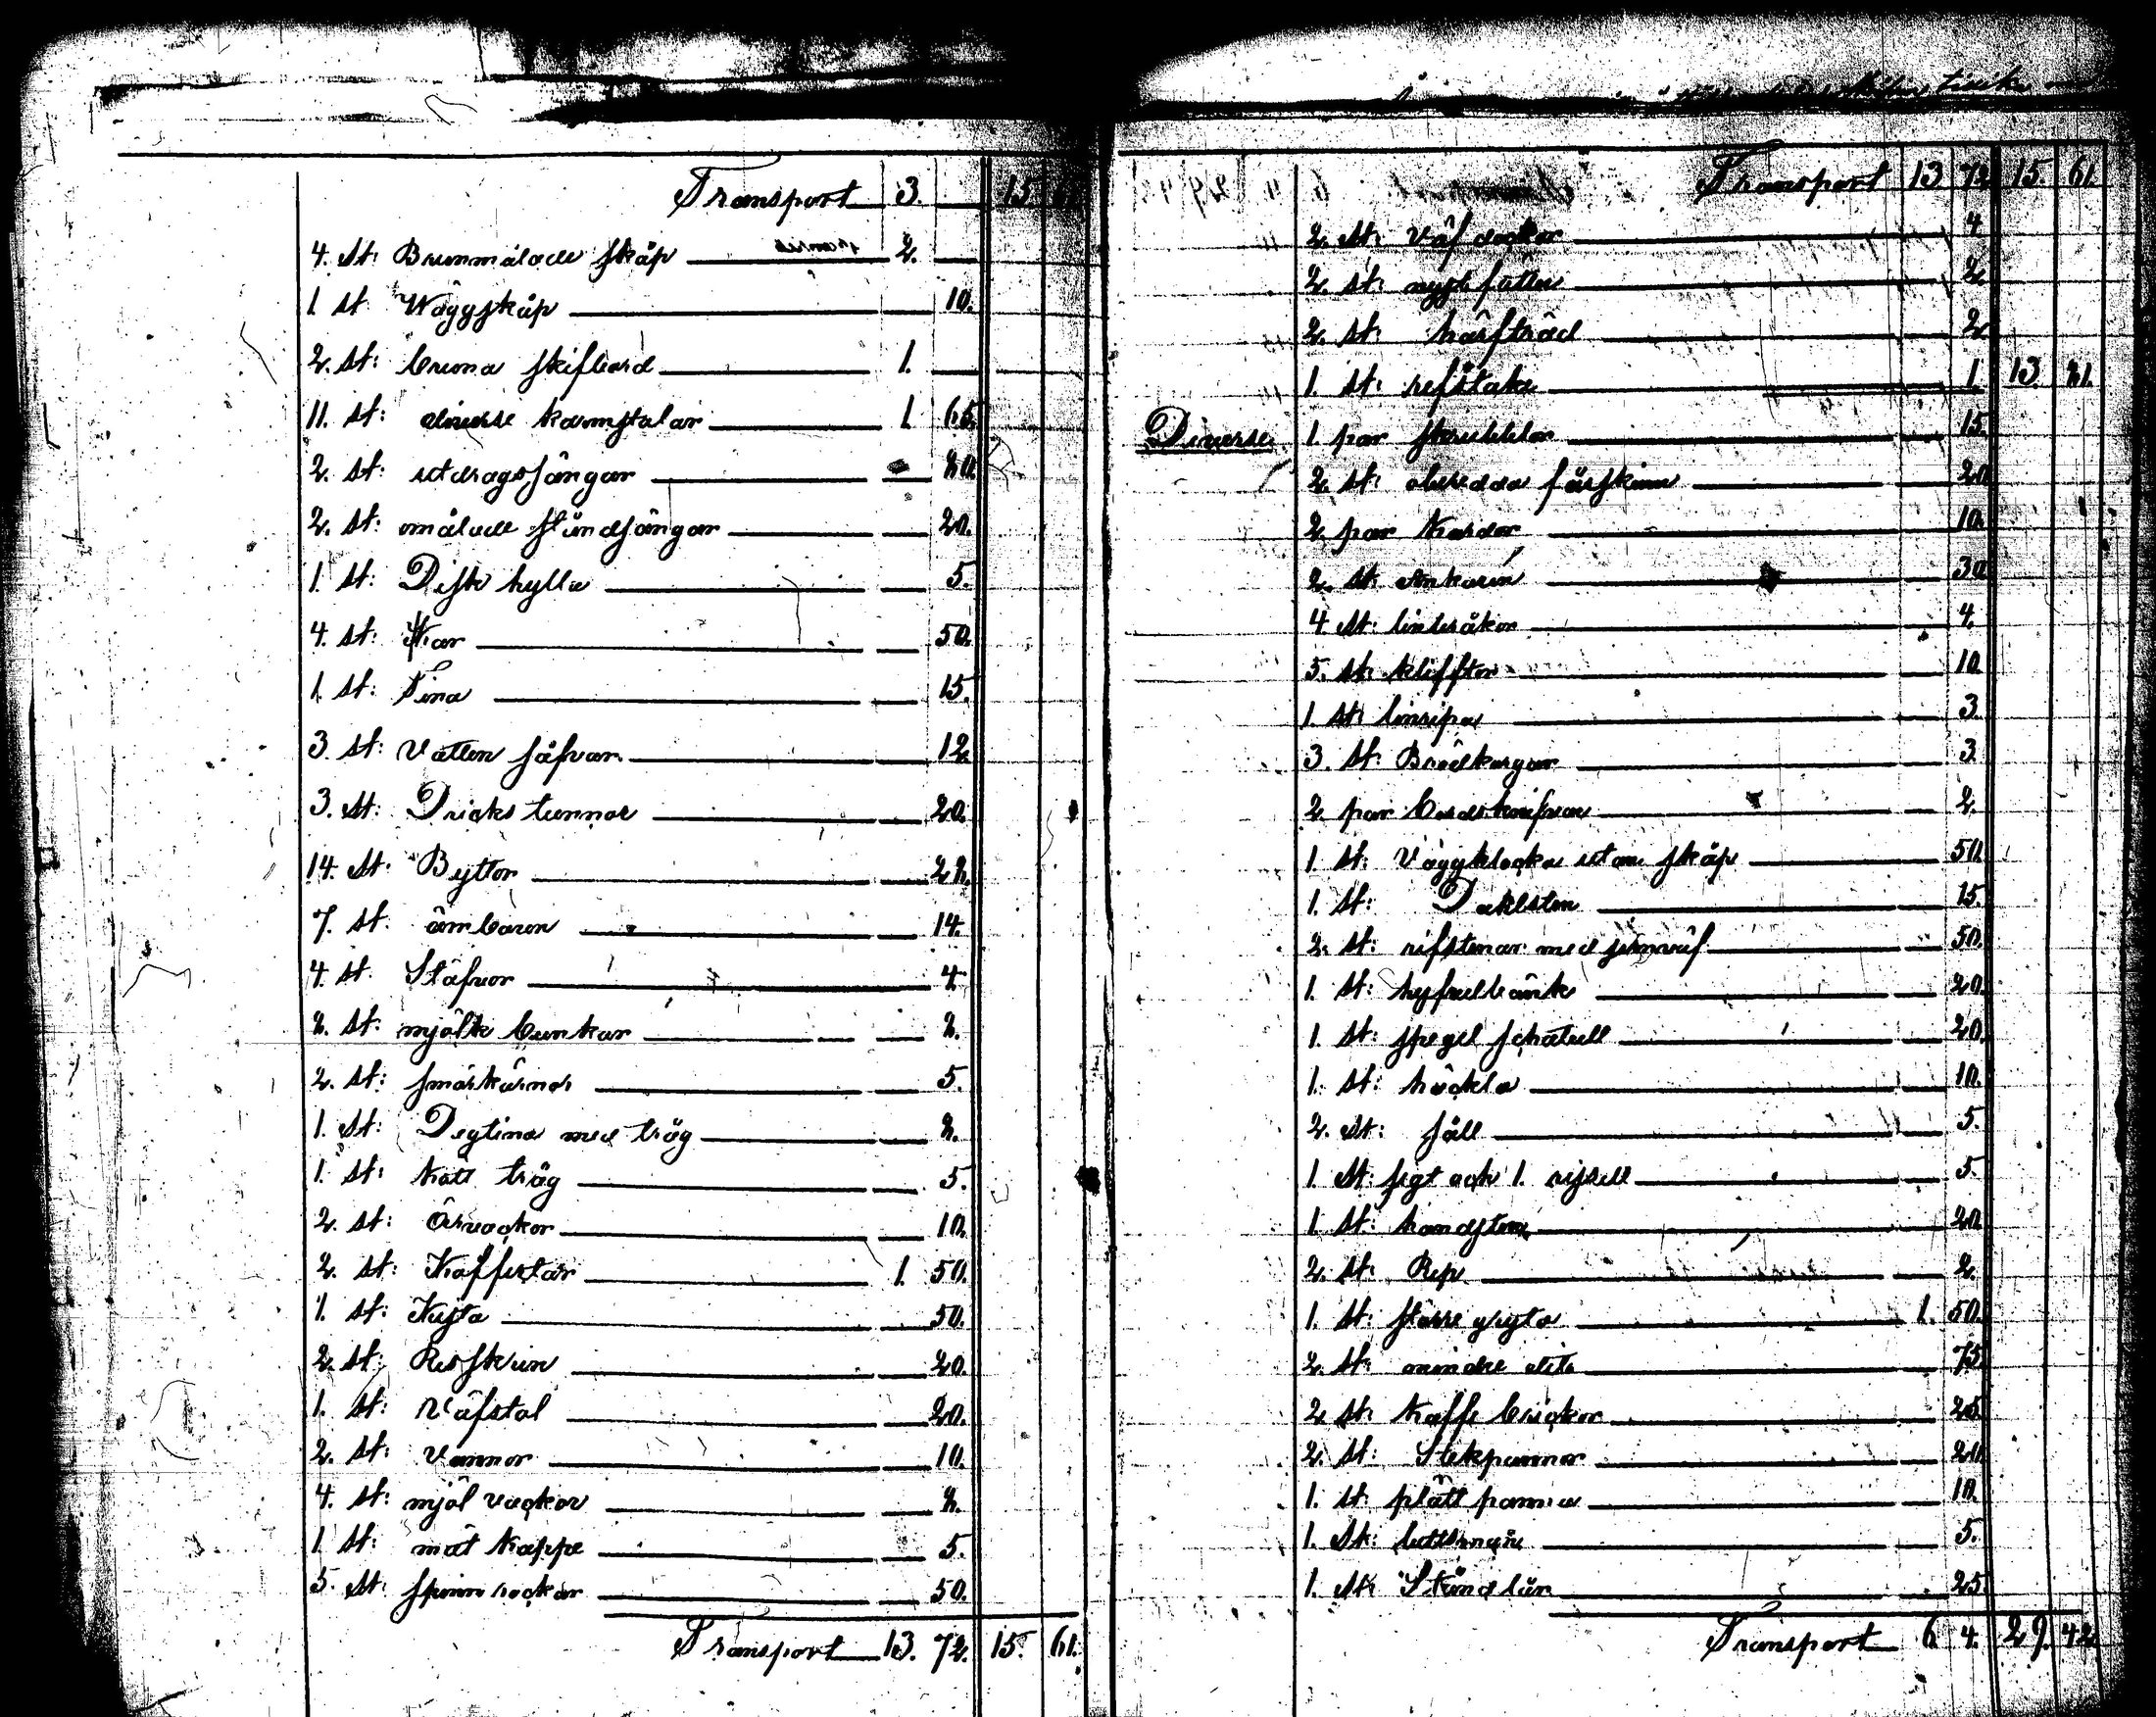 Transport 3. 15 61
4. St: Brunmålade skåp 2.
1 st Wäggskåp 10.
2. st: bruna skifbord 1.
11. st: diverse karmstolar 1. 65.
2. st: utdragssängar 80.
2. st: omålade ståndsängar 20.
1. st: Disk hylla 5.
4. st: Kar 50.
1. st: Tina 15.
3. st: Vatten såfvar 12
3. st: Dricks tunnor 20.
14. st. Byttor 28.
7. st. ämbaren 14.
4. st. Stäfvor 4
8. st: mjölk bunkar 8.
2. st: smörkärnor 5.
1. st: Degtina med tråg 8.
1. st: kött tråg 5.
2. st: 10
2. st: Koffertar 1. 50.
1. st: Kista 50.
2. st: Resskrin 20.
1. st: Väfstol 20.
2. st: Vannor 10.
4. st: mjöl vackor 8.
1. st: måt kappe 5.
5. st: spinn rockar 50.
Transport 13. 72. 15. 61.
Transport 13 72 15. 61.
2. st: Väf dockor 4
2. st: nystfötter 2.
2. st: härfträd 2
1. st: refstake 1. 13. 81.
Diverse 1 par skrubblor 15.
2. st: oberedda fårskinn 20
2. par kardor 10.
2. st: Ankaren 30
4. st: linbråkor 4.
5. st: klifftor 10
1 st: linripa 3
3. st: Brödkorgar 3.
2 par bordsknifvar 2.
1 st: Väggklocka utan skåp 50.
1. st: Dahlsten 15.
2. st: rifstenar med 50.
1. st: hyfvelbänk 20.
1. st: spegel schatull 20.
1. st: häckla 10.
2. st: såll 5.
1 st: sigt och 1. rissell 5.
1. st: handsten 20.
2. st: Rep 2.
1. st: större gryta 1. 50.
2. st: mindre dito 75.
2 st: kaffe brickor 25.
2. st: Stekpannor 20
1. st: plätt panna 10.
1. st: 5.
1. st: 25
Transport 6. 4. 29. 42